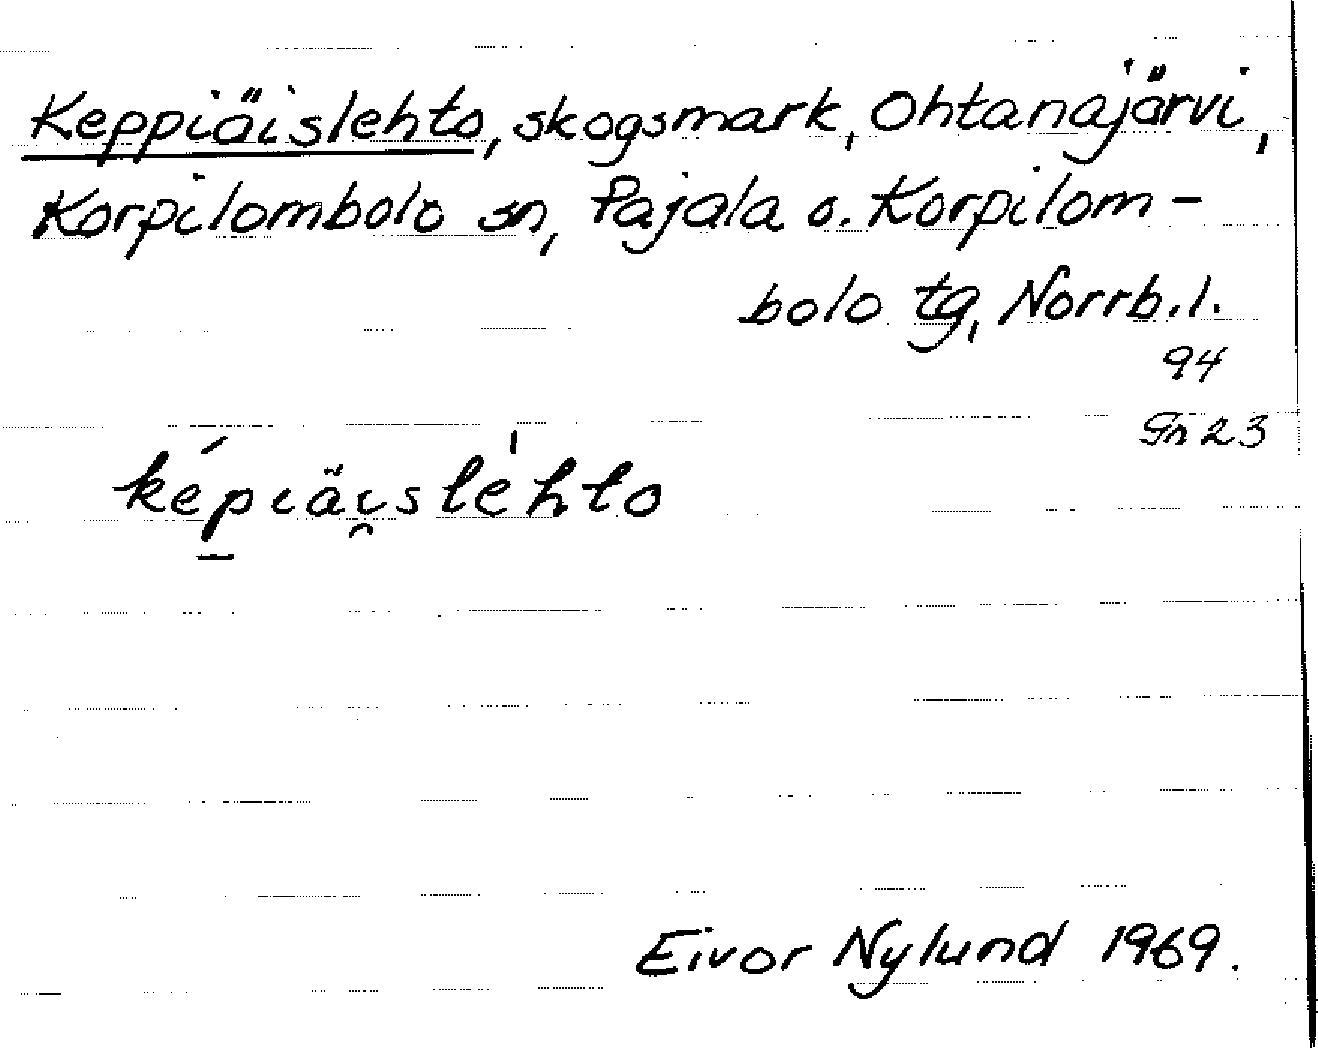 Keppiäislehto, skogsmark, Ohtanajärvi,
Korpilombolo sn, Pajala o. Korpilom-
bolo tg, Norrb.l.
94
Gn 23
ke̍p̱iäi̯sle̍hto
Eivor Nylund 1969.